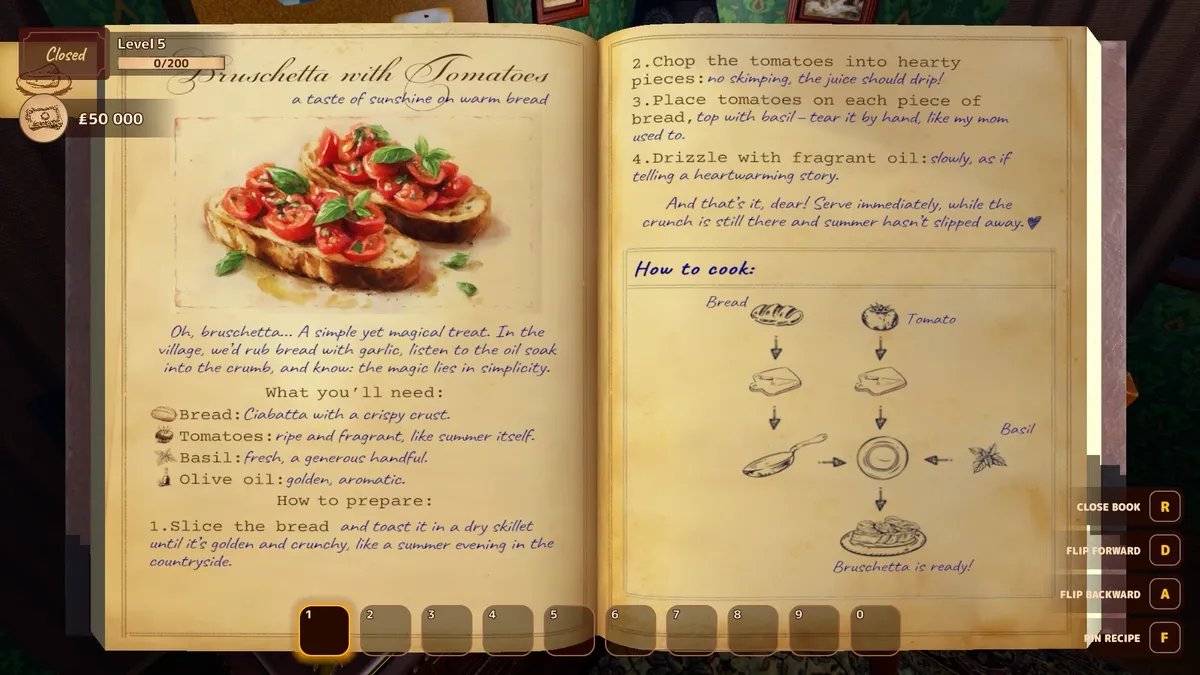 Closed
Level 5
0/200
£50 000
Bruschetta with Tomatoes
a taste of sunshine on warm bread
Oh, bruschetta... A simple yet magical treat. In the
village, we'd rub bread with garlic, listen to the oil soak
into the crumb, and know: the magic lies in simplicity.
What you'll need:
Bread: Ciabatta with a crispy crust.
Tomatoes: ripe and fragrant, like summer itself.
Basil: fresh, a generous handful.
Olive oil: golden, aromatic.
How to prepare:
1.Slice the bread and toast it in a dry skillet
until it's golden and crunchy, like a summer evening in the
countryside.
2.Chop the tomatoes into hearty
pieces: no skimping, the juice should drip!
3.Place tomatoes on each piece of
bread, top with basil – tear it by hand, like my mom
used to.
4.Drizzle with fragrant oil: slowly, as if
telling a heartwarming story.
And that's it, dear! Serve immediately, while the
crunch is still there and summer hasn't slipped away.
How to cook:
Bread
Tomato
Basil
Bruschetta is ready!
CLOSE BOOK R
FLIP FORWARD D
FLIP BACKWARD A
PIN RECIPE F
1 2 3 4 5 6 7 8 9 0